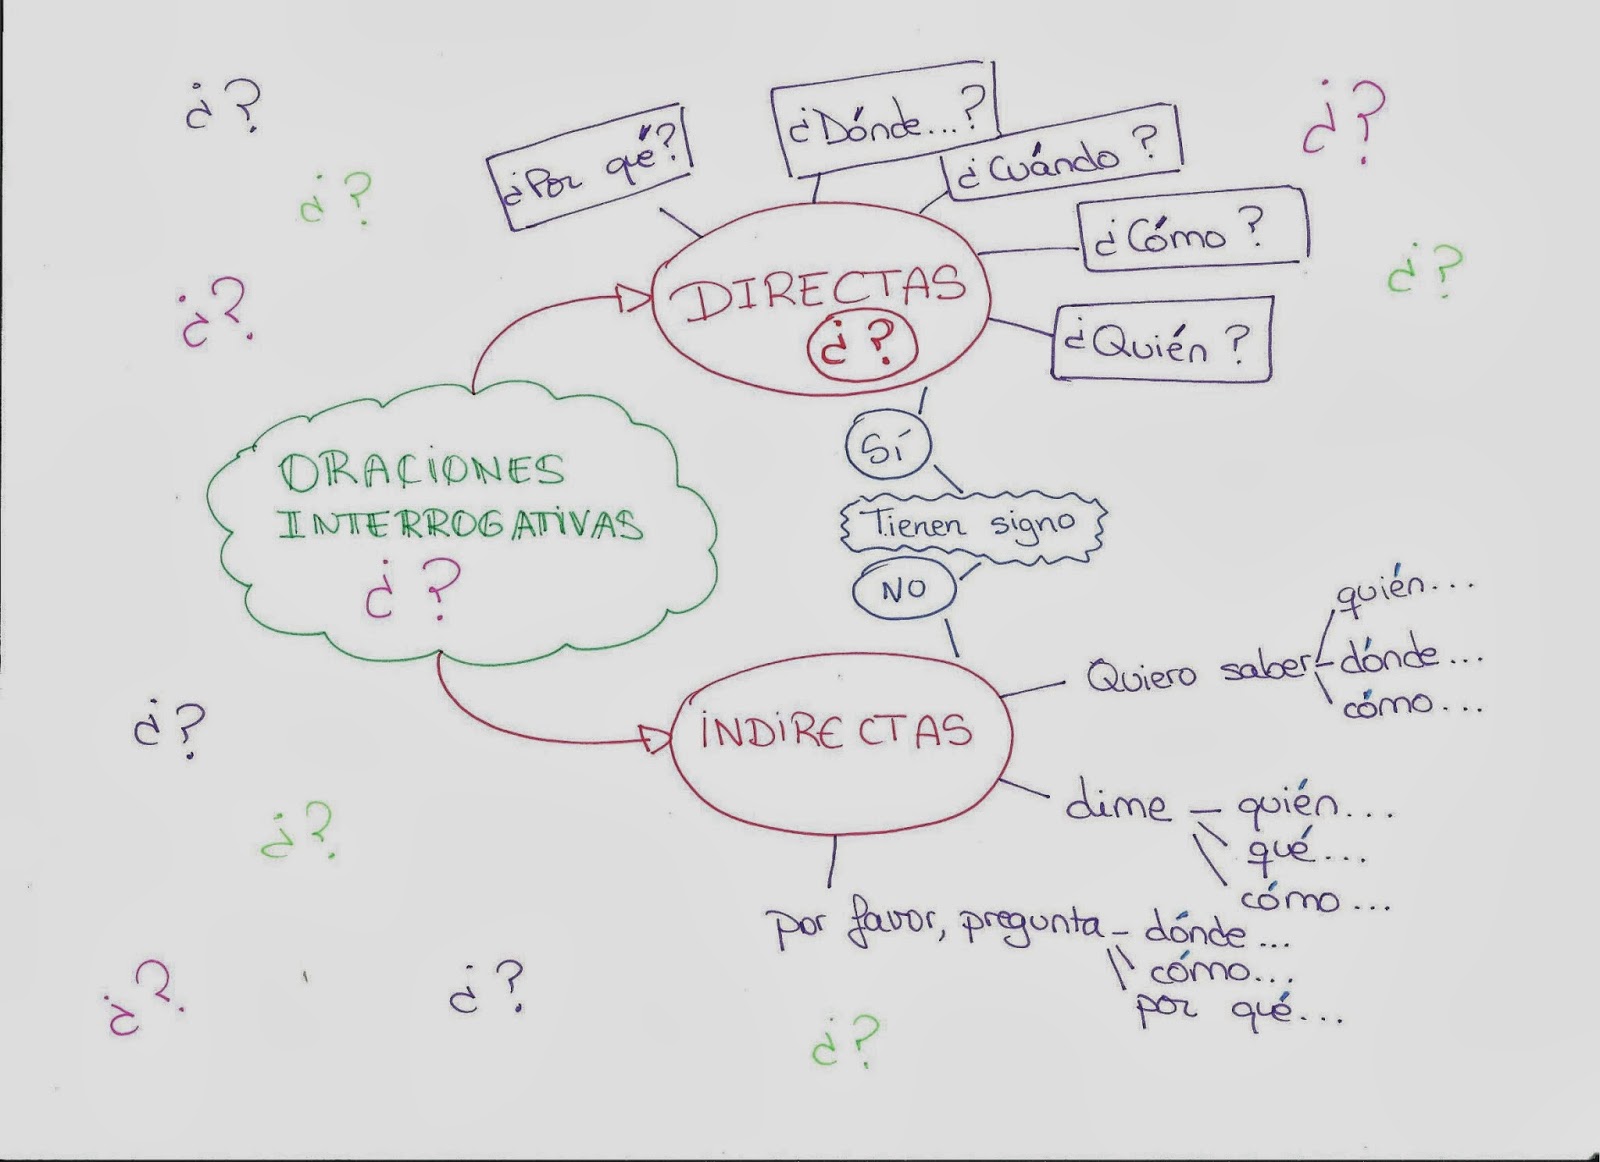 ¿?
¿?
¿?
¿?
¿?
¿Por qué?
¿Dónde...?
¿Cuándo?
¿Cómo?
¿Quién?
DIRECTAS
¿?
ORACIONES
INTERROGATIVAS
¿?
SÍ
Tienen signo
NO
INDIRECTAS
Quiero saber
quién...
dónde...
cómo...
dime
quién...
qué...
cómo...
por favor, pregunta
dónde...
cómo...
por qué...
¿?
¿?
¿?
¿?
¿?